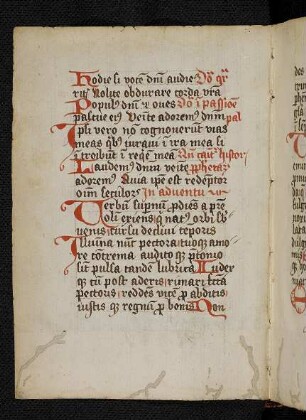 Hodie si vocē dnī audie Dō qr
ritis Nolite obdurare corda vrā
Populus dnī ⁊ oves Dō ī passiōe
pascue eius Venite adorem dnm pal
Ipsi vero nō cognoverūt vias
meas qb iuravi ī ira mea si
ītroibūt ī requiē meā
Laudem dnm venite
adorem Quia ipse est redeptor
oīm seculorū In adventu
Verbū supnū pdies a pre
Olī exiens q natus orbi sb
venis cursu declivi tēporis
Illuīna nūc pectora tuoqz amo
re cocrema audito qz pconio
sīt pulsa tandē lubrica Iudex
qz cū post aderis rimari fcā
pectoris reddēs vicē p abditis
iustis qz regnū p bonis Non